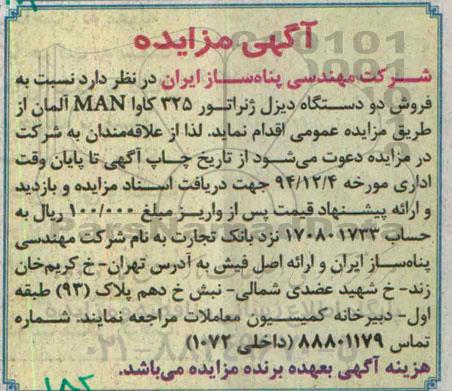 آگهی مزایده
شرکت مهندسی پناه‌ساز ایران در نظر دارد نسبت به
فروش دو دستگاه دیزل ژنراتور ۳۲۵ کاوا MAN آلمان از
طریق مزایده عمومی اقدام نماید. لذا از علاقه‌مندان به شرکت
در مزایده دعوت می‌شود از تاریخ چاپ آگهی تا پایان وقت
اداری مورخه ۹۴/۱۲/۴ جهت دریافت اسناد مزایده و بازدید
و ارائه پیشنهاد قیمت پس از واریز مبلغ ۱۰۰/۰۰۰ ریال به
حساب ۱۷۰۸۰۱۷۳۳ نزد بانک تجارت به نام شرکت مهندسی
پناه‌ساز ایران و ارائه اصل فیش به آدرس تهران- خ کریم‌خان
زند- خ شهید عضدی شمالی- نبش خ دهم پلاک (۹۳) طبقه
اول- دبیرخانه کمیسیون معاملات مراجعه نمایند. شماره
تماس ۸۸۸۰۱۱۷۹ (داخلی ۱۰۷۲)
هزینه آگهی بعهده برنده مزایده می‌باشد.